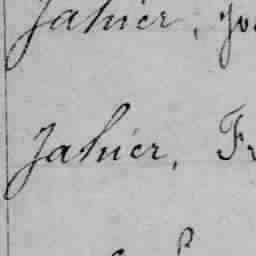 Jahier, Jo
Jahier, Fr